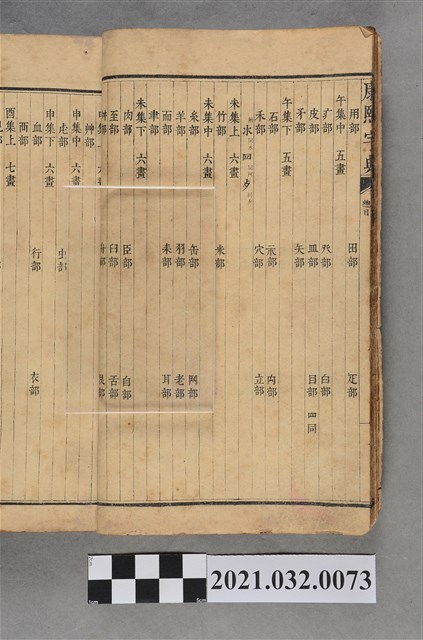 康熙字典 總目
用部 田部 疋部
午集中 五畫
疒部 癶部 白部
皮部 皿部 目部 四同
矛部 矢部
午集下 五畫
石部 示部 禸部
禾部 穴部 立部
未集上 六畫
竹部 米部
未集中 六畫
糸部 缶部 网部
羊部 羽部 老部
而部 耒部 耳部
聿部
未集下 六畫
肉部 臣部 自部
至部 臼部 舌部
艮部
艸部
申集中 六畫
虍部 虫部
申集下 六畫
血部 行部 衣部
襾部
酉集上 七畫
2021.032.0073